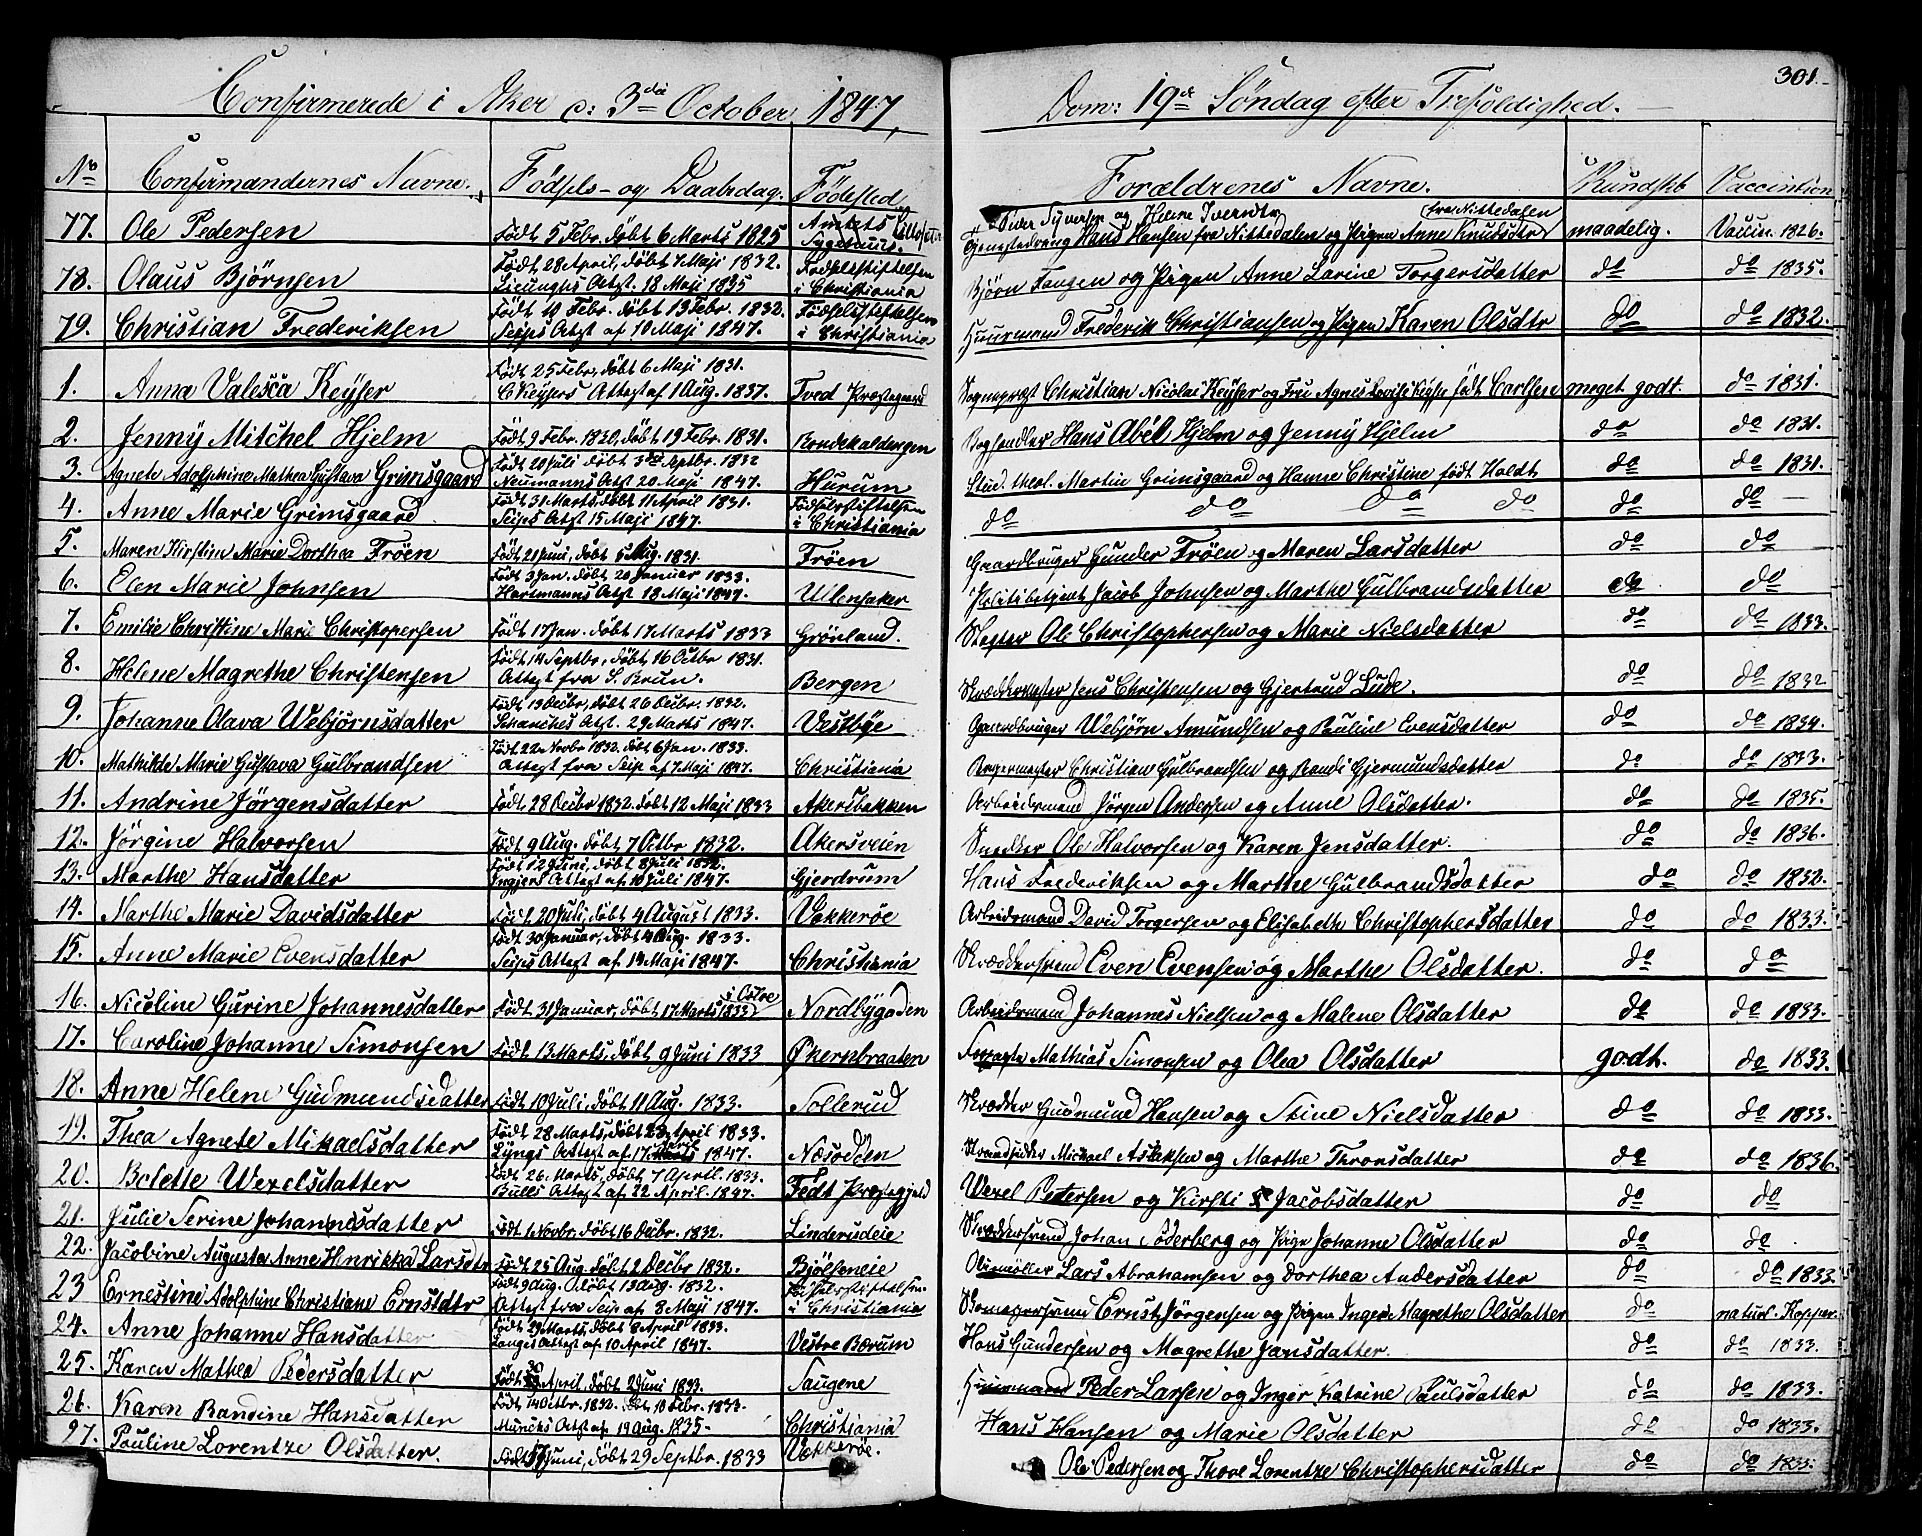 301.
Confirmerede i Aker d: 3die October 1847, Dom: 19de Søndag efter Trefoldighed.
No Confirmandernes Navne. Fødsels- og Daabsdag. Fødested Forældrenes Navne. Kundskab Vaccination
77. Ole Pedersen Født 5 Febr. døbt 6 Marts 1825 Amtets Sygehuus. Peder Syversen og Helene Iversdtr
Tjenestedreng Hans Hansen fra Nittedalen og Pigen Anne Knudsdtr fra Nittedalen maadelig. Vaccin. 1826.
78. Olaus Bjørnsen Født 28 April, døbt 7 Maji 1832. Attest. 18 Maji 1835 Fødselsstiftelsen i Christiania Bjørn Fangen og Pigen Anne Larine Torgersdatter do do 1835.
79. Christian Frederiksen Født 10 Febr. døbt 13 Febr. 1832. Seips Attest af 10 Maji 1847. Fødselsstiftelsen i Christiania Huusmand Frederik Christiansen og Pigen Karen Olsdtr do do 1832.
1. Anna Valesca Keyser Født 25 Febr, døbt 6 Maji 1831. C Keysers Attest af 1 Aug. 1837. Tved Præstegaard Sogneprest Christian Nicolai Keyser og Fru Agnes Lovise Keyser født Carlsen meget godt. do 1831.
2. Jenny Mitchel Hjelm Født 9 Febr. 1830, døbt 19 Febr. 1831. Hans Abel Hjelm og Jenny Hjelm do do 1831.
3. Agnete Adolphine Mathea Gustava Grimsgaard Født 20 Juli døbt 3die Septbr. 1832 Neumanns Attst 20 Maji 1847. Hurum Stud. theol. Martin Grimsgaard og Hanne Christine født Holdt do do 1831.
4. Anne Marie Grimsgaard Født 31 Marts, døbt 11 April 1831. Seips Attst 15 Maji 1847. Fødselsstiftelsen i Christiania do do do do do do —
5. Maren Kirstine Marie Dorthea Frøen Født 21 Juni, døbt 6 Aug. 1831. Frøen Gaardbruger Gunder Frøen og Maren Larsdatter do do
6. Elen Marie Johnsen Født 3 Jan. døbt 20 Januar 1833. Hartmanns Attst 18 Maji 1847. Ullensaker Politibetjent Jacob Johnsen og Marthe Gulbrandsdatter do do
7. Emilie Christine Marie Christophersen Født 17 Jan. døbt 17 Marts 1833 Grønland. Ole Christophersen og Marie Nielsdatter do do 1833.
8. Helene Magrethe Christensen Født 14 Septbr, døbt 16 Octbr 1831. Attest fra S. Brun. Bergen Skræddermester Jens Christensen og Gjertrud Lude. do do 1832
9. Johanne Olava Webjørnsdatter Født 13 Decbr, døbt 26 Decbr. 1832. Attst. 29 Marts 1847. Vestbye Gaardbruger Webjørn Amundsen og Pauline Evensdatter do do 1834.
10. Mathilde Marie Gustava Gulbrandsen Født 22 Novbr 1832. døbt 6 Jan. 1833. Attest fra Seip af 7 Maji 1847. Christiania Christian Gulbrandsen og Randi Gjermundsdatter do do 1833.
11. Andrine Jørgensdatter Født 28 Decbr 1832. døbt 12 Maji 1833 Akersbakken Arbeidsmand Jørgen Andersen og Anne Olsdatter. do do 1835.
12. Jørgine Halvorsen Født 9 Aug. døbt 7 Octbr 1832. Akersveien Snedker Ole Halvorsen og Karen Jensdatter. do do 1836.
13. Marthe Hansdatter Født 12 Juni, døbt 8 Juli 1832. Attest af 10 Juli 1847. Gjerdrum Hans Frederiksen og Marthe Gulbrandsdatter do do 1832.
14. Marthe Marie Davidsdatter Født 20 Juli, døbt 4 August 1833. Vækkerøe Arbeidsmand David Torgersen og Elisabeth Christophersdatter do do 1833.
15. Anne Marie Evensdatter Født 30 Januar, døbt 4 Aug. 1833. Seips Attest af 14 Maji 1847. Christiania Skræddersvend Even Evensen og Marthe Olsdatter. do do
16. Nicoline Gurine Johannesdatter Født 31 Januar, døbt 17 Marts 1833 i Østre Nordbygaden Arbeidsmand Johannes Nielsen og Malene Olsdatter do do 1833.
17. Caroline Johanne Simonsen Født 13 Marts, døbt 9 Juni 1833 Økernbraaten Mathias Simonsen og Olea Olsdatter godt. do 1833.
18. Anne Helene Gudmundsdatter Født 10 Juli, døbt 11 Aug. 1833. Sollerud Skrædder Gudmund Hansen og Stine Nielsdatter do do 1833.
19. Thea Agnete Mikaelsdatter Født 28 Marts, døbt 23 April 1833. Lyngs Attest af 17 April 1847. Næsodden Strandsidder Michael Aslaksen og Marthe Thronsdatter do do 1836.
20. Bolette Wexelsdatter Født 26 Marts, døbt 7 Aprtl. 1833. Bulls Attest af 22 April. 1847. Fedt Præstegjeld Wexel Pedersen og Kirsti Jacobsdatter do do
21. Julie Serine Johannesdatter Født 1 Novbr, døbt 16 Decbr. 1832. Linderudeie Skræddersvend Johan Söderberg og Pige Johanne Olsdatter do do.
22. Jacobine Augusta Anne Henrikka Larsdtr Født 25 Aug. døbt 2 Decbr 1832. Bjølseneie Oliemøller Lars Abrahamsen og Dorthea Andersdatter do do 1833.
23 Ernestine Adolphine Christiane Ernstdtr Født 9 Aug. døbt 13 Aug. 1832. Attest fra Seip af 8 Maji 1847. Fødselsstiftelsen i Christiania Skomagersvend Ernst Jørgensen og Pigen Inger Magrethe Olsdatter do naturl. Kopper.
24. Anne Johanne Hansdatter Født 29 Marts, døbt 8 April 1833. Langes Attest af. 10 April 1847. Vestre Bærum Hans Gundersen og Magrethe Jansdatter. do do 1833.
25. Karen Mathea Pedersdatter Født 30 April, døbt 2 Juni 1833. Saugene Huusmand Peder Larsen og Inger Katrine Paulsdatter do do 1833.
26. Karen Bandine Hansdatter Født 14 Octbr. 1832. døbt 10 Febr. 1833. Muncks Attst af. 19 Aug. 1835. Christiania Hans Hansen og Marie Olsdatter do do 1833.
27. Pauline Lorentze Olsdatter. Født Juni, døbt 29 Septbr. 1833 Vækkerøe. Ole Pedersen og Thore Lorentze Christophersdatter do do 1833.